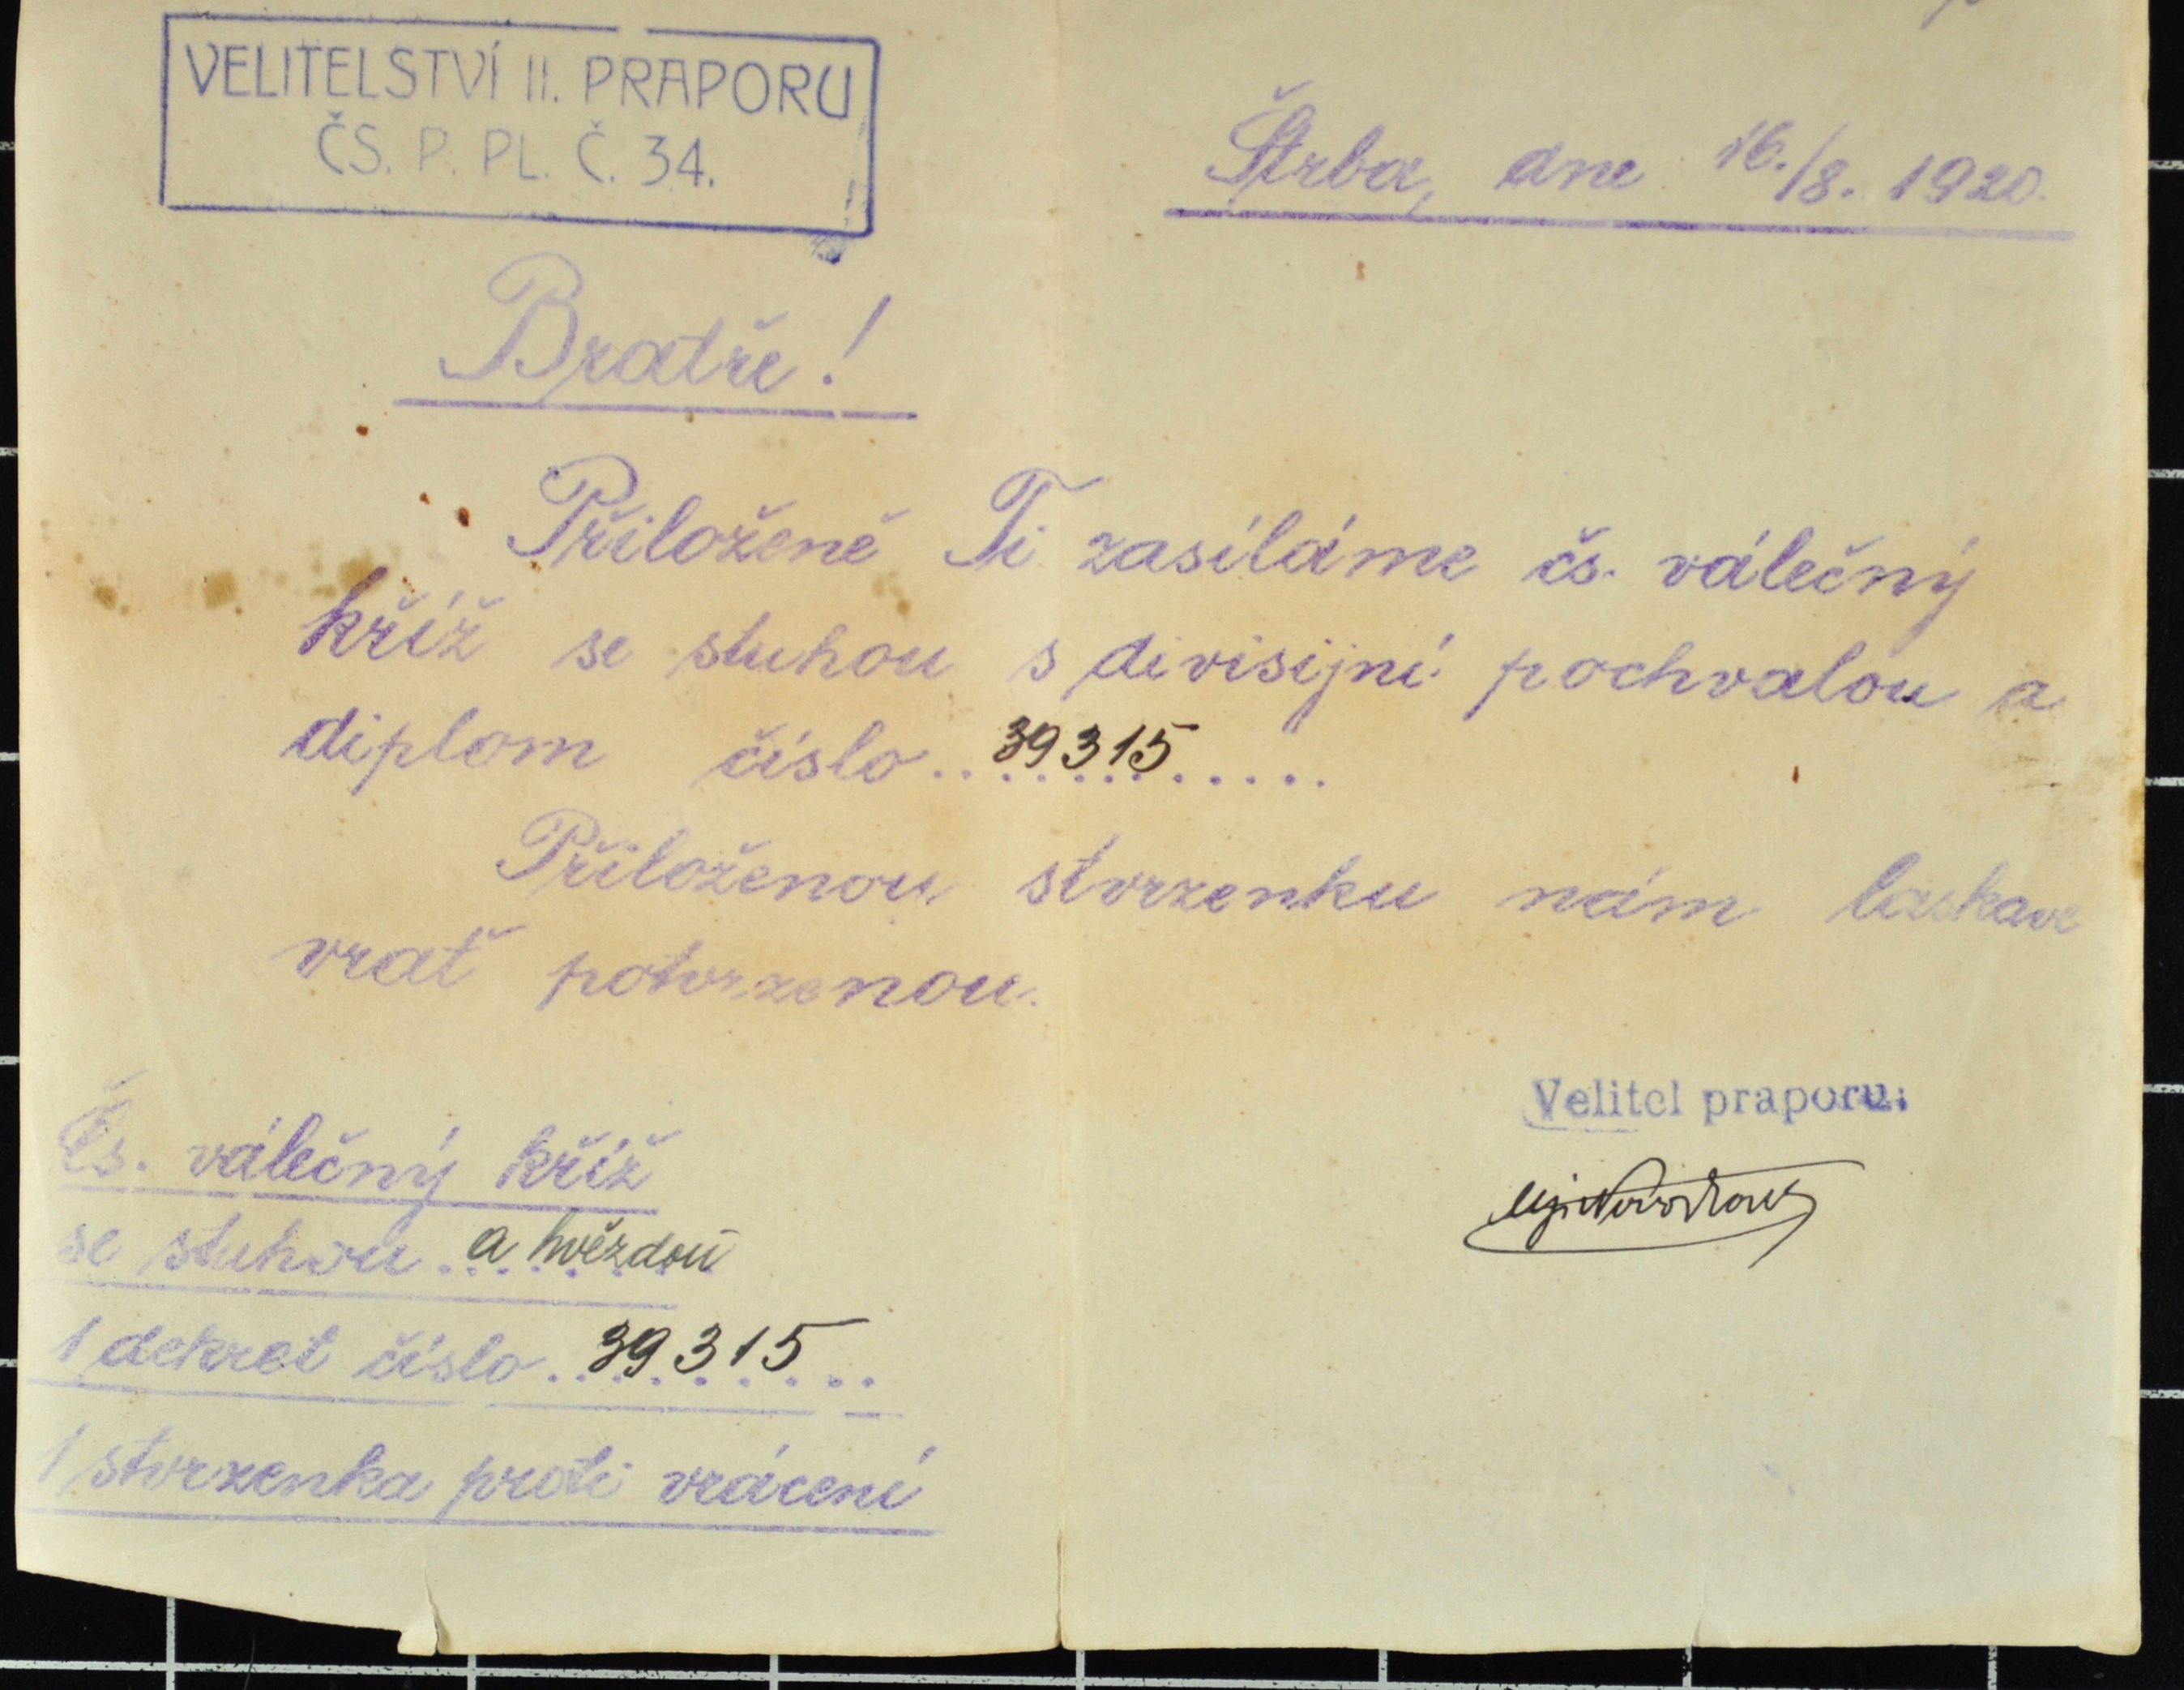 VELITELSTVÍ II. PRAPORU
ČS. P. PL. Č. 34.
Štrba, dne 16./8. 1920.
Bratře!
Přiloženě Ti zasíláme čs. válečný
kříž se stuhou s divisijní pochvalou a
diplom číslo..39315.....
Přiloženou stvrzenku nám laskavě
vrať potvrzenou.
Velitel praporu:
Čs. válečný kříž
se stuhou..a hvězdou
1 dekret číslo..39315...
1 stvrzenka proti vrácení